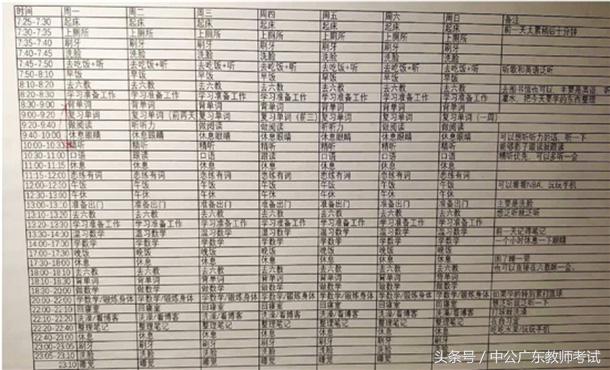 时间 周一 周二 周三 周四 周五 周六 周日 备注
7:25-7:30 起床 起床 起床 起床 起床 起床 起床
7:30-7:35 上厕所 上厕所 上厕所 上厕所 上厕所 上厕所 上厕所 前一天太累稍后十分钟
7:35-7:40 刷牙 刷牙 刷牙 刷牙 刷牙 刷牙 刷牙
7:40-7:45 洗脸 洗脸 洗脸 洗脸 洗脸 洗脸 洗脸
7:45-7:50 去吃饭+听 去吃饭+听 去吃饭+听 去吃饭+听 去吃饭+听 去吃饭+听 去吃饭+听
7:50-8:10 早饭 早饭 早饭 早饭 早饭 早饭 早饭 听歌和英语泛听
8:10-8:20 去六教 去六教 去六教 去六教 去六教 去六教 去六教
8:20-8:30 学习准备工作 学习准备工作 学习准备工作 学习准备工作 学习准备工作 学习准备工作 学习准备工作
8:30-9:00 背单词 背单词 背单词 背单词 背单词 背单词 背单词 灌水，把今天要学的东西整理
9:00-9:20 复习单词 复习单词（前两天 复习单词 复习单词（前三 复习单词 复习单词 复习单词（一周
9:20-9:40 做阅读 听听力 做阅读
9:40-10:00 休息眼睛 休息眼睛 休息眼睛 休息眼睛 休息眼睛 休息眼睛 休息眼睛 可以想听听力的话，听一下
10:00-10:30 精听 精听 精听 精听 精听 精听 精听
10:30-11:00 口语 跟读 口语 跟读 口语 跟读 口语 精听优先，可以多听一会
休息 休息 休息 休息 休息 休息 休息
11:15-12:00 恋练有词 恋练有词 恋练有词 恋练有词 恋练有词 恋练有词 恋练有词
12:00-12:30 午饭 午饭 午饭 午饭 午饭 午饭 午饭 可以看看NBA，玩玩手机
12:30-13:00 午休 午休 午休 午休 午休 午休 午休
准备出门 准备出门 准备出门 准备出门 准备出门 准备出门 准备出门 主要是洗脸
13:10-13:20 去六教 去六教 去六教 去六教 去六教 去六教 去六教 想泛听就泛听
13:20-13:30 学习准备工作 学习准备工作 学习准备工作 学习准备工作 学习准备工作 学习准备工作 学习准备工作
13:30-14:00 温习数学 温习数学 温习数学 温习数学 温习数学 温习数学 温习数学 前一天记得笔记
14:00-17:30 学数学 学数学 学数学 学数学 学数学 学数学 学数学 一个小时休息一下眼睛
晚饭 晚饭 晚饭 晚饭 晚饭 晚饭 晚饭
休息 休息 休息 休息 休息 休息 休息
18:00-18:10 去六教 去六教 去六教 去六教 去六教 去六教 去六教 也可以直接在六教眯一会
18:10-18:30 背单词 背单词 背单词 背单词 背单词 背单词 背单词
18:30-20:00 学数学 学数学 学数学 学数学 学数学 学数学 学数学
20:00-22:00 学数学/锻炼身体 学数学/锻炼身体 学数学/锻炼身体 学数学/锻炼身体 学数学/锻炼身体 学数学/锻炼身体 学数学/锻炼身体
回寝室 回寝室 回寝室 回寝室 回寝室 回寝室 回寝室 想泛听就泛听一下
洗澡/看博客 洗澡/看博客 洗澡/看博客 洗澡/看博客 洗澡/看博客 洗澡/看博客 洗澡/看博客
整理笔记 整理笔记 整理笔记 整理笔记 整理笔记 整理笔记
休息 休息 休息 休息 休息 休息
洗脸 洗脸 洗脸 洗脸 洗脸 洗脸
23:10 睡觉 睡觉 睡觉 睡觉 睡觉
头条号／中公广东教师考试